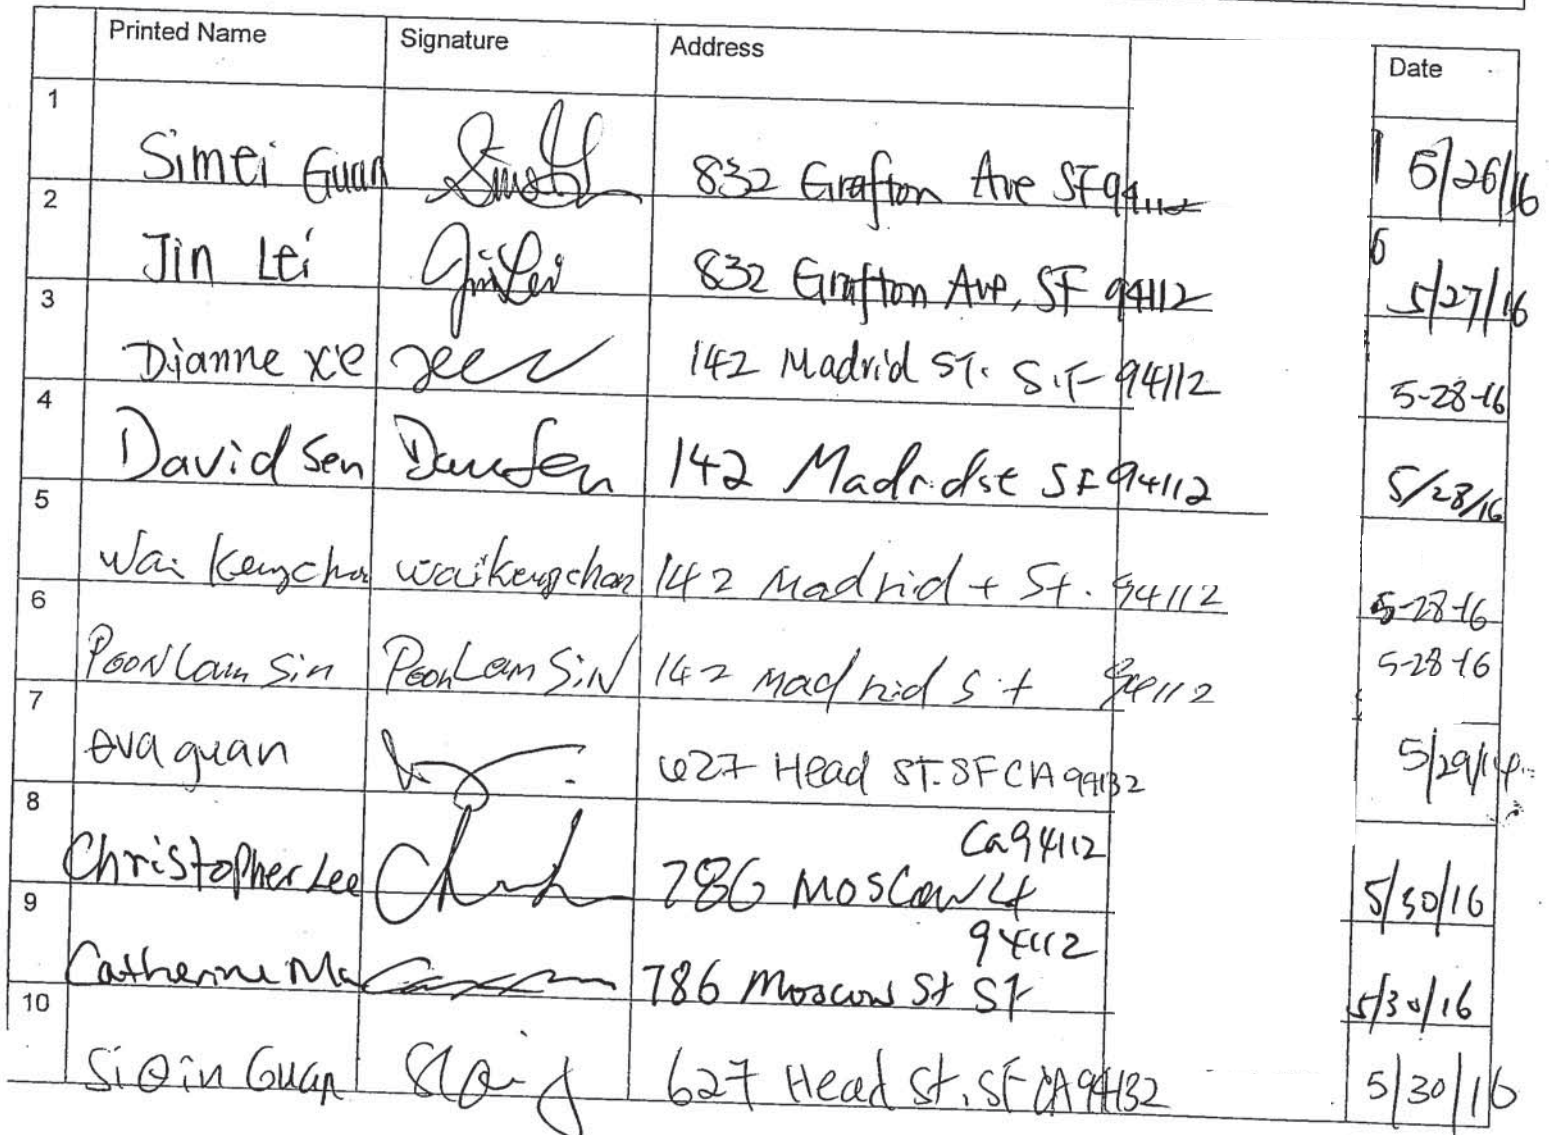 Printed Name Signature Address Date
1 Simei Guan 832 Grafton Ave SF 94112 5/26/16
2 Jin Lei Jin Lei 832 Grafton Ave, SF 94112 5/27/16
3 Dianne xie 142 Madrid ST. S.F 94112 5-28-16
4 David Sen 142 Madrid st SF 94112 5/28/16
5 Wai Keung chan waikeungchan 142 Madrid + St. 94112 5-28-16
6 Poon Lam Sin Poon Lam SiN 142 Madrid St 94112 5-28-16
7 eva guan 627 Head ST. SF CA 94132 5/29/16
Ca 94112
8 Christopher Lee 786 Moscow st 5/30/16
94112
9 Catherine Ma 786 Moscow St SF 5/30/16
10 SiQin Guan 627 Head St, SF CA 94132 5/30/16